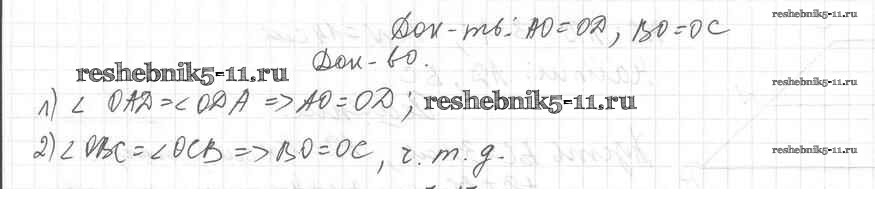 reshebnik5-11.ru
Док-ть: AO=OD, BO=OC
Док-во.
reshebnik5-11.ru
reshebnik5-11.ru
1) ∠ OAD=∠ODA => AO=OD; reshebnik5-11.ru
2) ∠OBC=∠OCB => BO=OC, ч. т. д.
reshebnik5-11.ru